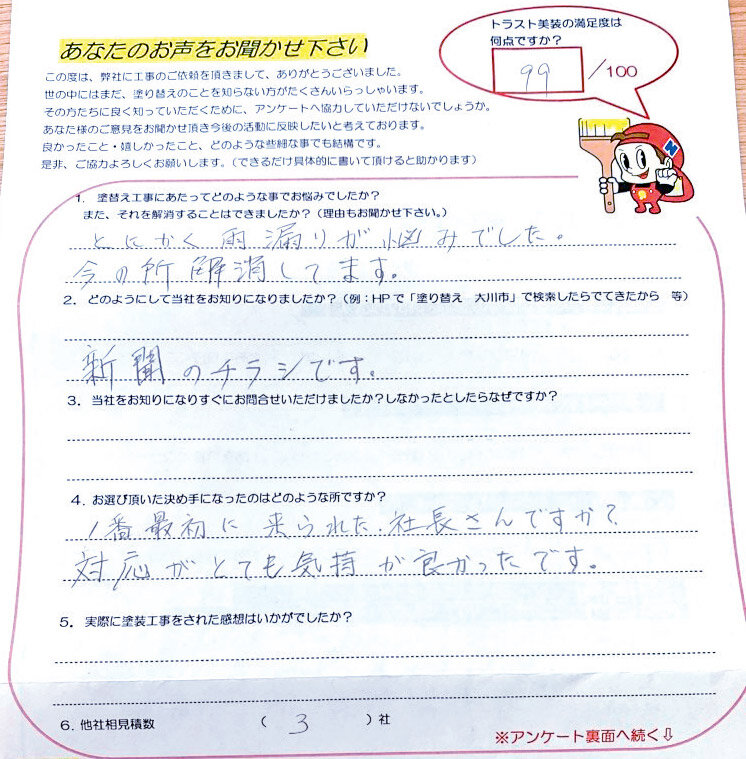 あなたのお声をお聞かせ下さい
トラスト美装の満足度は
何点ですか?
99 /100
この度は、弊社に工事のご依頼を頂きまして、ありがとうございました。
世の中にはまだ、塗り替えのことを知らない方がたくさんいらっしゃいます。
その方たちに良く知っていただくために、アンケートへ協力していただけないでしょうか。
あなた様のご意見をお聞かせ頂き今後の活動に反映したいと考えております。
良かったこと・嬉しかったこと、どのような些細な事でも結構です。
是非、ご協力よろしくお願いします。(できるだけ具体的に書いて頂けると助かります)
N
1. 塗替え工事にあたってどのような事でお悩みでしたか?
また、それを解消することはできましたか?(理由もお聞かせ下さい。)
とにかく雨漏りが悩みでした。
今の所解消してます。
2. どのようにして当社をお知りになりましたか?(例:HPで「塗り替え 大川市」で検索したらでてきたから 等)
新聞のチラシです。
3. 当社をお知りになりすぐにお問合せいただけましたか?しなかったとしたらなぜですか?
4. お選び頂いた決め手になったのはどのような所ですか?
1番最初に来られた社長さんですか?
対応がとても気持が良かったです。
5. 実際に塗装工事をされた感想はいかがでしたか?
6. 他社相見積数 ( 3 )社
※アンケート裏面へ続く⇩